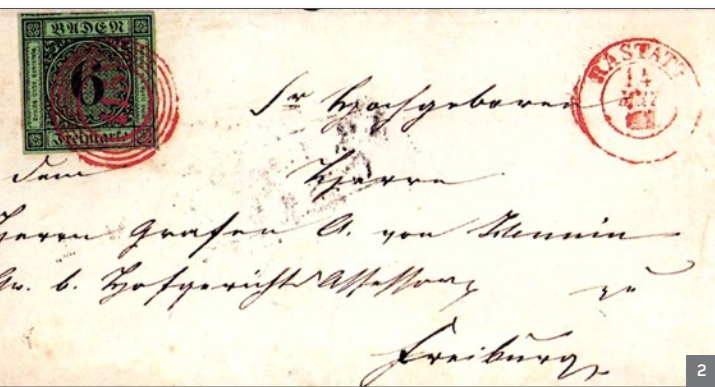 BADEN
6
Freimarke
RASTATT
14
Sr Hochgeboren
dem Herrn
Herrn Grafen A. von Hennin
Gr. b. Hofgerichts Assessor zu
Freiburg
2